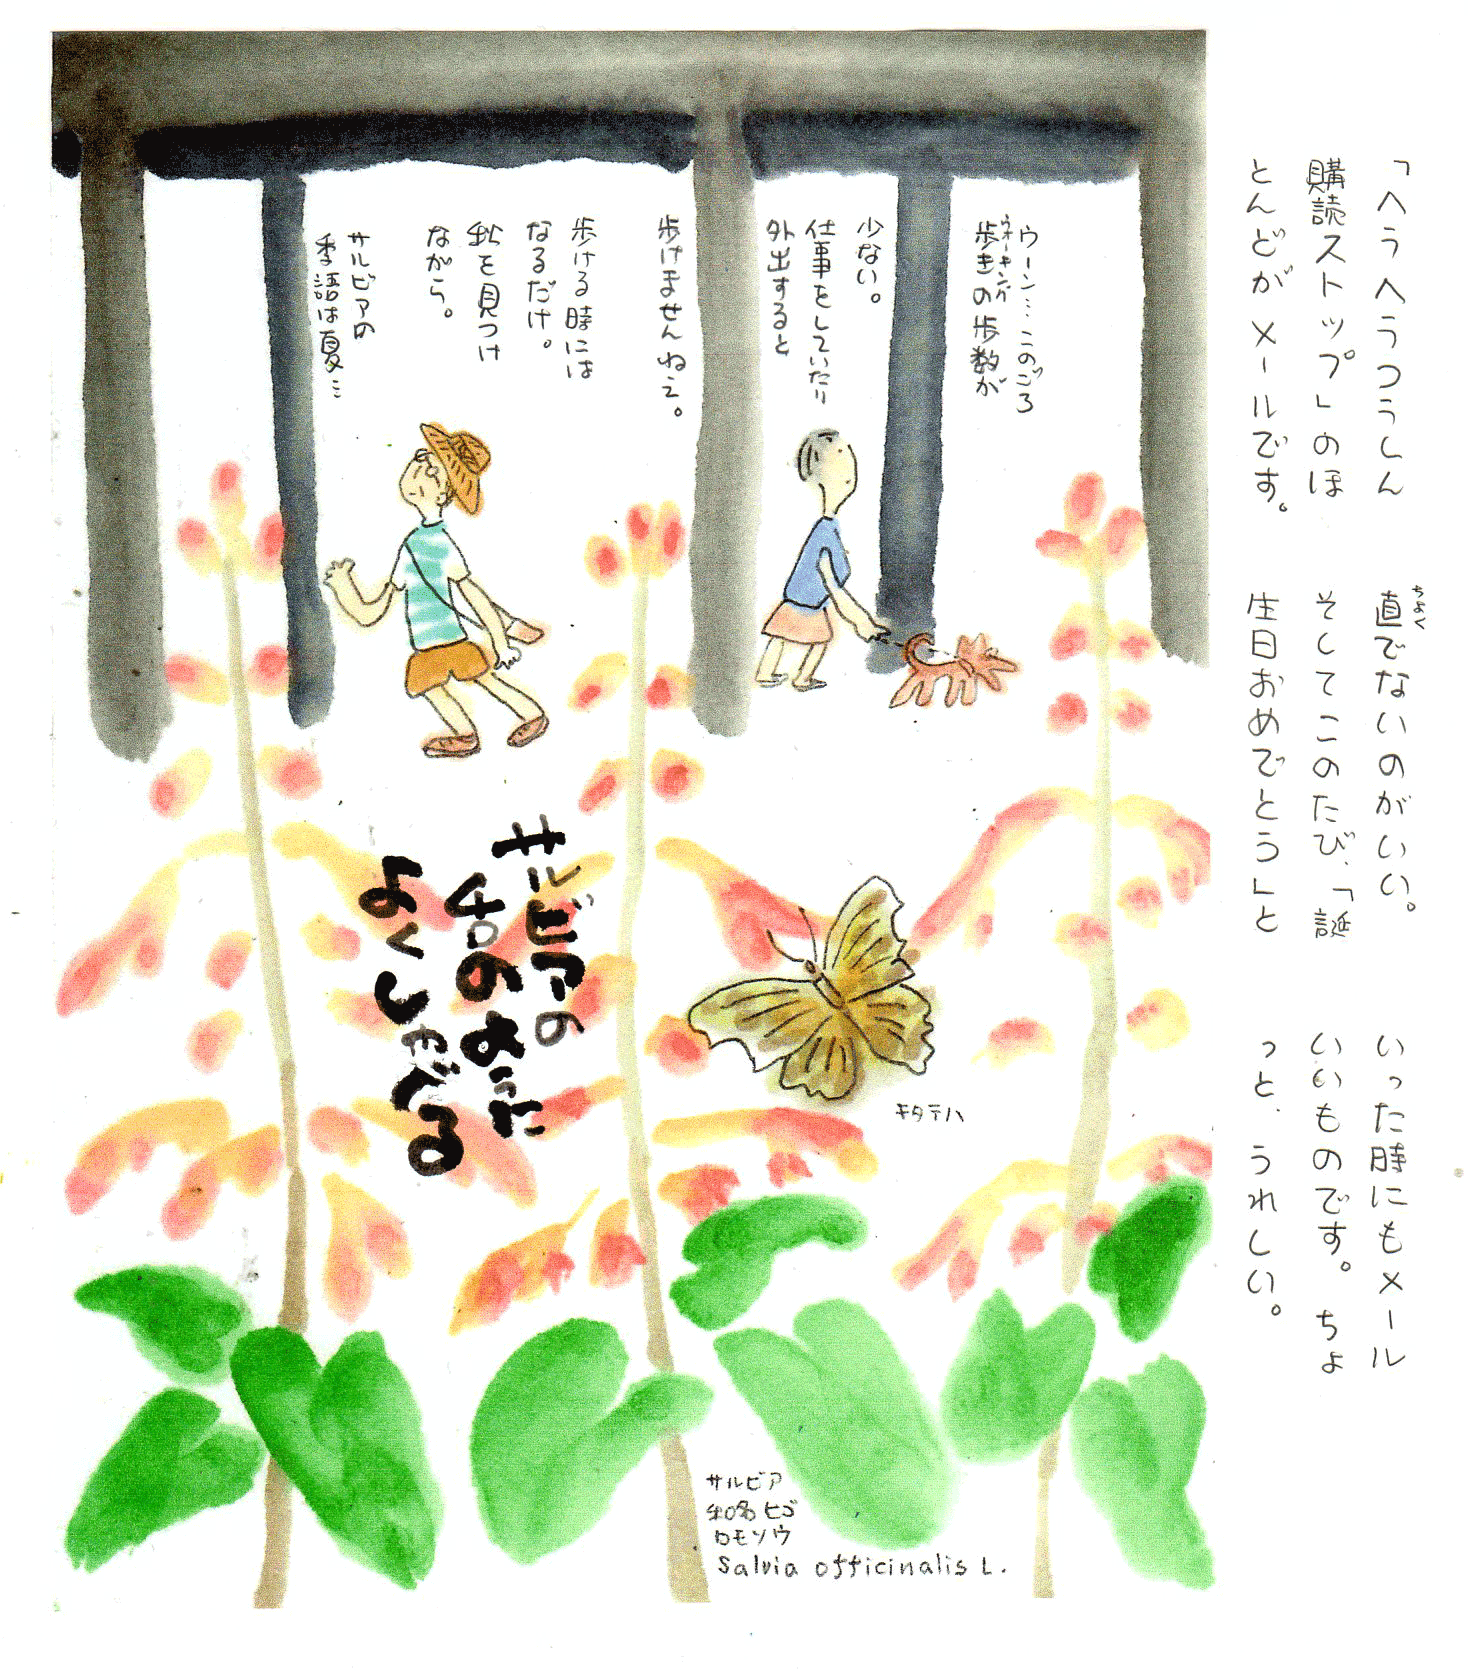 「へうへうつうしん
購読ストップ」のほ
とんどがメールです。
ちょく
直でないのがいい。
そしてこのたび、「誕
生日おめでとう」と
いった時にもメール
いいものです。ちょ
っと、うれしい。
ウーン…このごろ
歩きの歩数が
少ない。
仕事をしていたり
外出すると
歩けませんねェ。
歩ける時には
なるだけ。
秋を見つけ
ながら。
サルビアの
季語は夏…
サルビアの
よくしゃべる
キタテハ
サルビア
和名ヒゴ
ロモソウ
Salvia officinalis L.